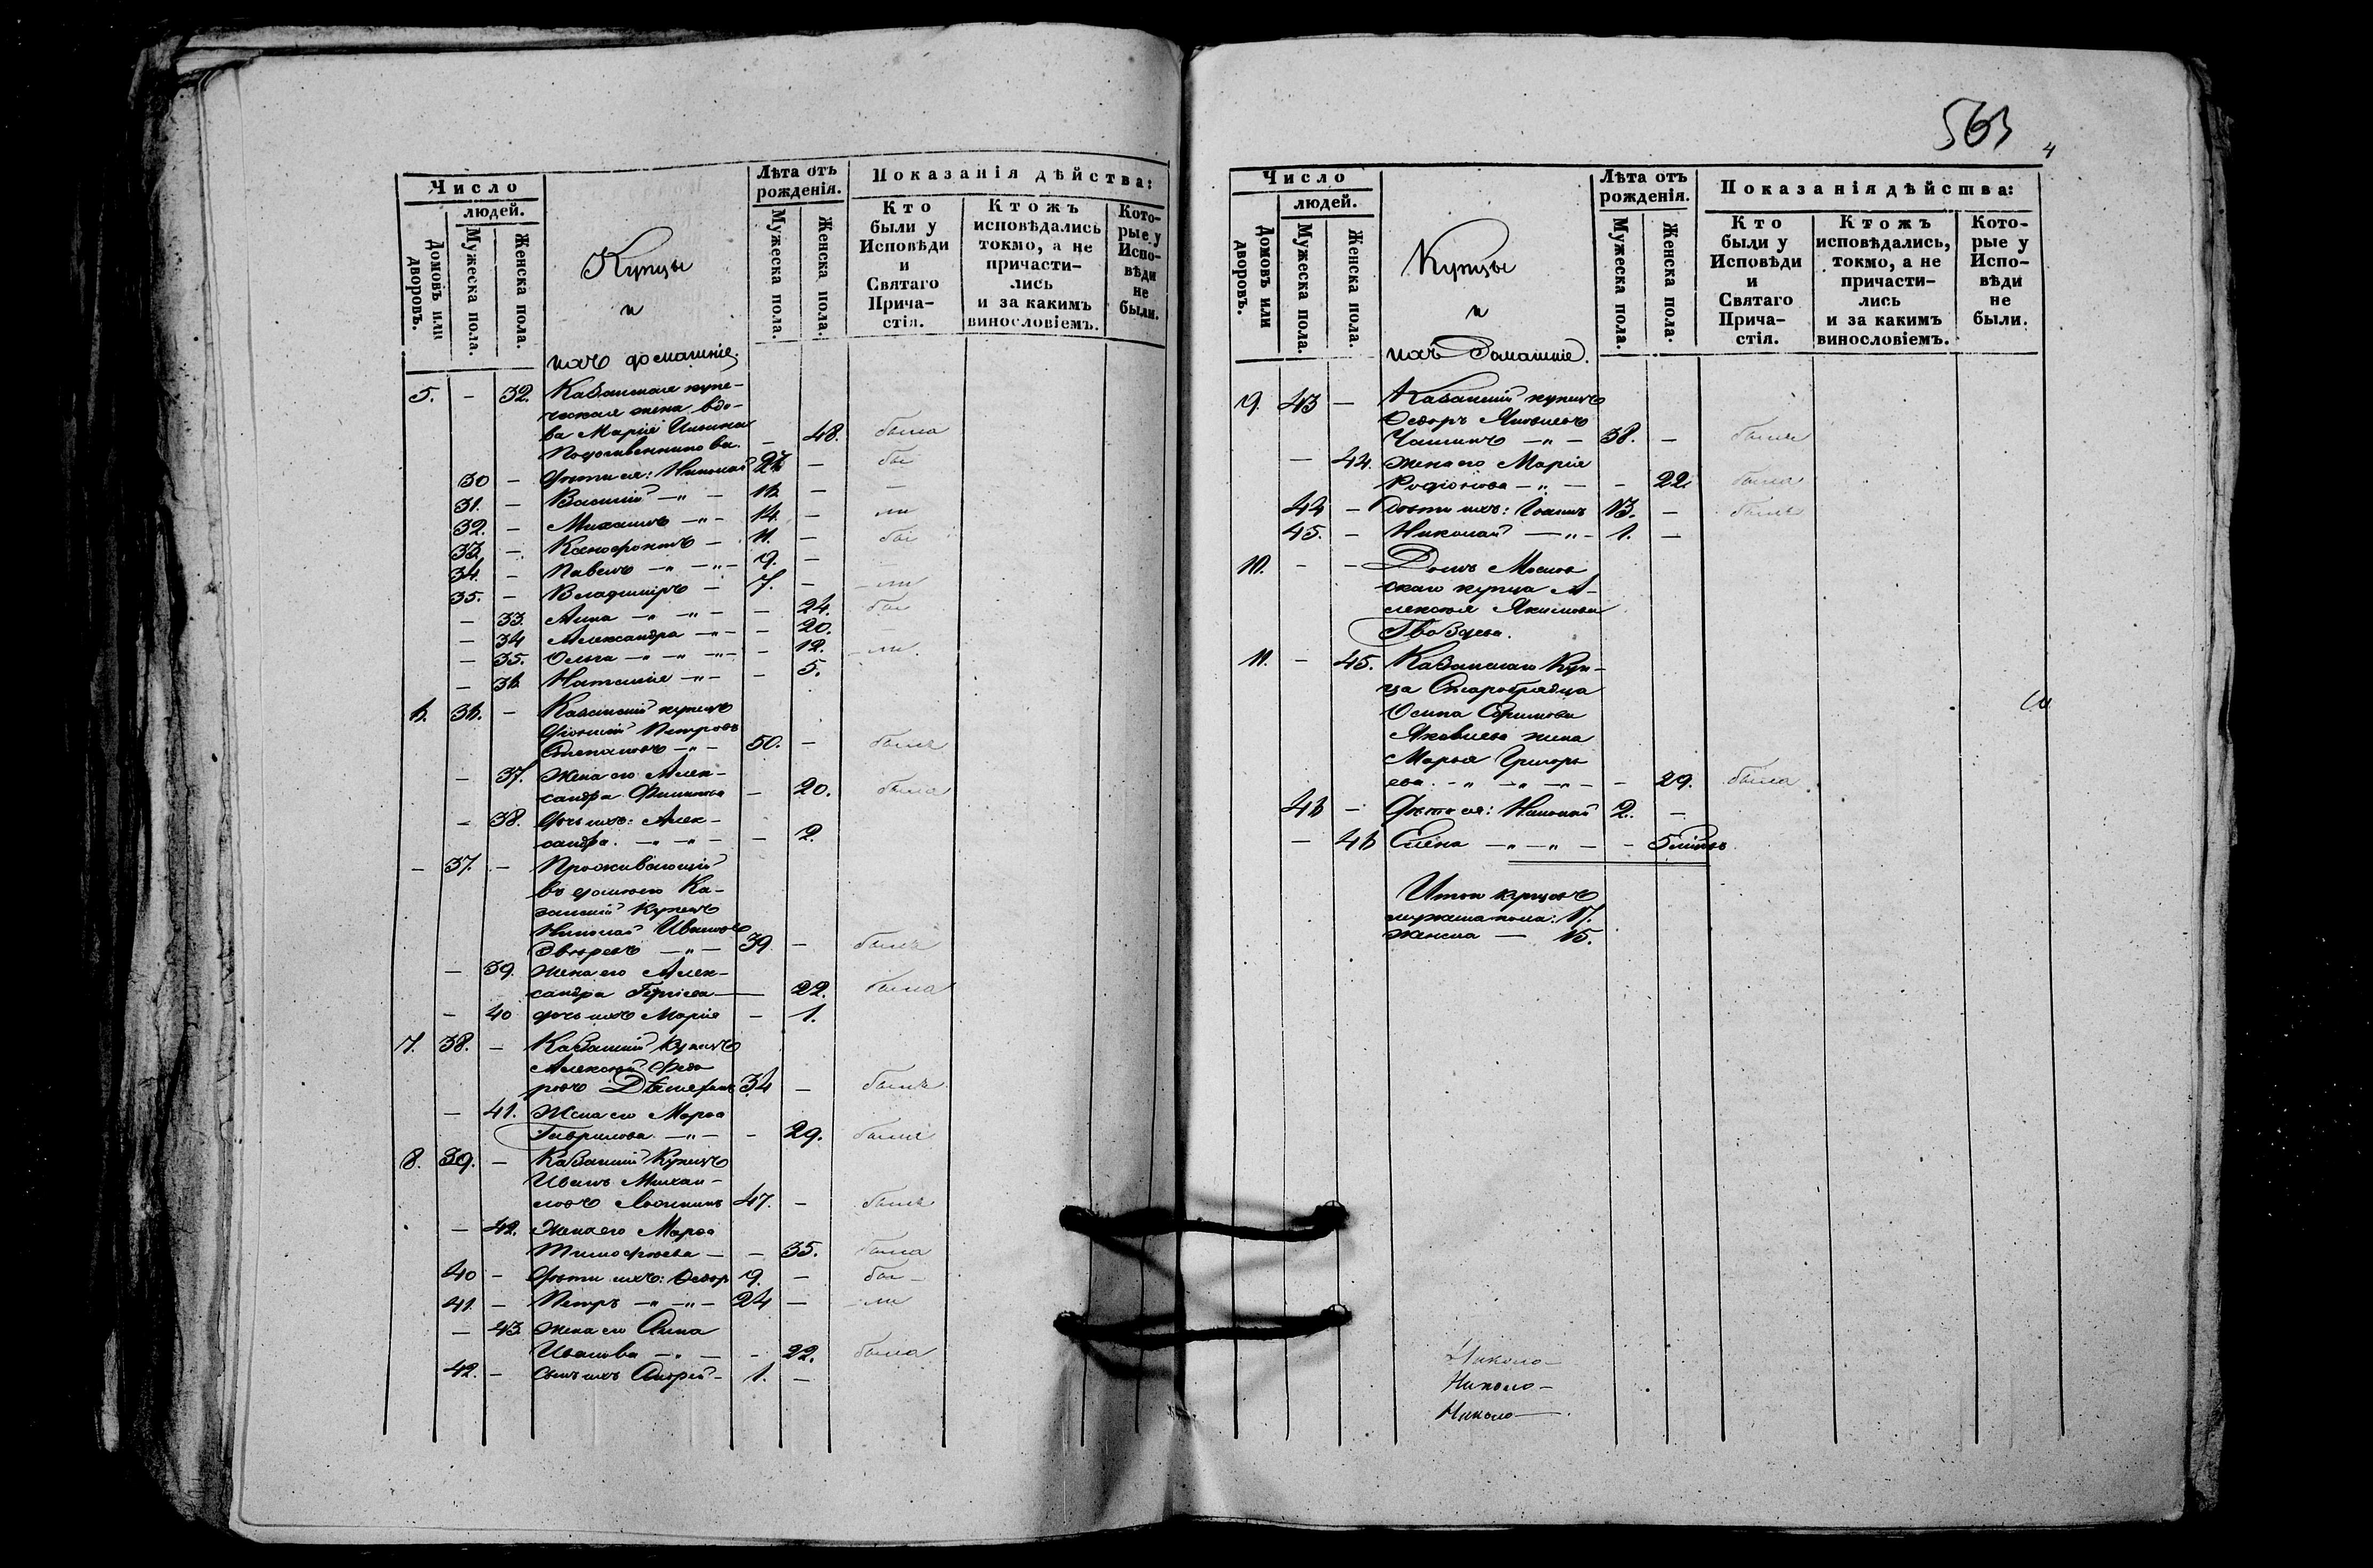 Число
людей.
Домовъ или дворовъ.
Мужеска пола.
Женска пола.
Купцы
и
ихъ домашніе.
Лѣта отъ
рожденія.
Мужеска пола.
Женска пола.
Показанія дѣйства:
Кто
были у
Исповѣди
и
Святаго
Прича-
стія.
Ктожъ
исповѣдались
токмо, а не
причасти-
лись
и за какимъ
винословіемъ.
Кото-
рые у
Испо-
вѣди
не
были.
5. — 32. Казанская купе-
ческая жена вдо-
ва Марія Ильина
— 48. была
30 — дѣти ея: Николай 27 — бы
31. — Василій —"— 16. — —
32. — Михаилъ —"— 14. — ли
33. — Ксенофонтъ — 11. — бы
34. — Павелъ —"— —"— 9. — —
35. — Владиміръ — 7. — ли
— 33. Анна —"— —"— — 24. бы
— 34 Александра —"— — 20. —
— 35. Ольга —"— —"— — 12. ли
— 36. Наталія —"— — 5.
6. 36. — Казанскій купецъ
Діонисій Петровъ
Степановъ —"— 50. — былъ
— 37. Жена его Алек-
сандра Филипова — 20. была
— 38. дочь ихъ: Алек-
сандра. —"— —"— — 2.
— 37. — Проживающій
въ домѣ его Ка-
занскій Купецъ
Николай Ивановъ
39. — былъ
— 39. жена его Алек-
сандра — 22. была
— 40 дочь ихъ Марія — 1.
7. 38. — Казанскій Купецъ
Алексѣй Федо
ровъ 34 — былъ
— 41. Жена его Марѳа
Гаврилова —"— — 29. была
8. 39. — Казанскій Купецъ
Иванъ Михай-
ловъ 47. — былъ
— 42. Жена его Марѳа
Тимофѣева — — 35. была
40 — дѣти ихъ: Ѳедоръ 9. — бы—
41. — Петръ —"— —"— 24 — —ли
— 43. жена его Анна
Иванова —"— — 22. была
42. — сынъ ихъ Андрей — 1. —
563
4
Число
людей.
Домовъ или дворовъ.
Мужеска пола.
Женска пола.
Купцы
и
ихъ Домашніе.
Лѣта отъ
рожденія.
Мужеска пола.
Женска пола.
Показанія дѣйства:
Кто
были у
Исповѣди
и
Святаго
Прича-
стія.
Ктожъ
исповѣдались,
токмо, а не
причасти-
лись
и за какимъ
винословіемъ.
Кото-
рые у
Испо-
вѣди
не
были.
9. 43 — Казанскій купецъ
Ѳедоръ Яковлевъ
38. — былъ
— 44. жена его Марія
Родіонова —"— — — 22. была
44 — Дѣти ихъ: Іоаннъ 13. — былъ
45. — Николай —"— 1. —
10. — — Домъ Москов
скаго купца А-
лексѣя Якимова
Гвоздева.
11. — 45. Казанскаго Куп-
ца Старобрядца
Осипа Ефимова
Яковлева жена
Марья Григорь
ева. —"— —"— —"— — 29. была
46 — Дѣти ея: Николай 2. —
— 46 Елена —"— —"— — — 5
Итого купцовъ
мужска пола: 17.
женска — 15.
Николо—
Николо—
Николо—